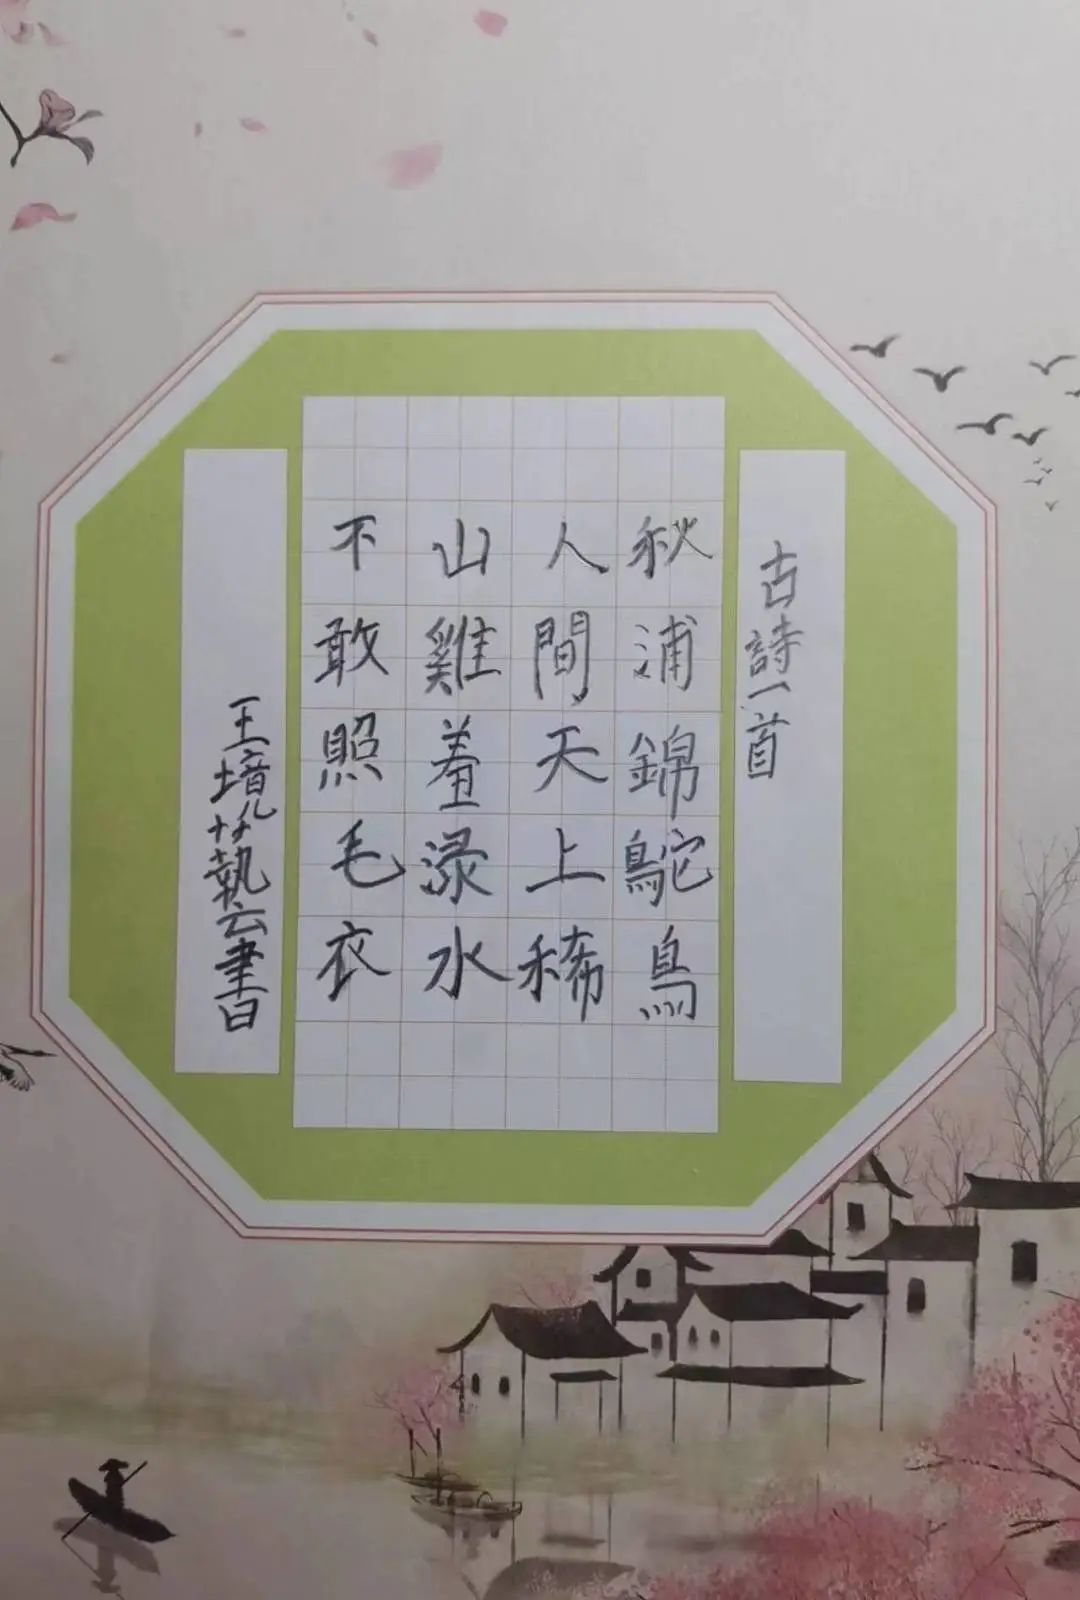 古詩一首
秋浦錦鴕鳥
人間天上稀
山雞羞渌水
不敢照毛衣
王境藝書